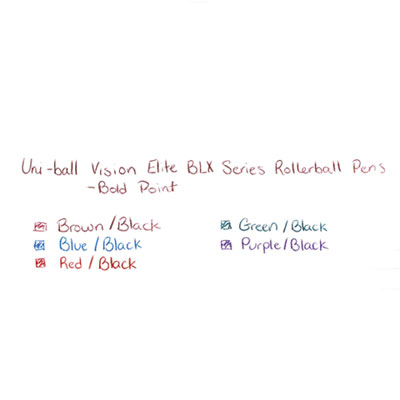 Uni-ball Vision Elite BLX Series Rollerball Pens
-Bold Point
Brown/Black
Blue/Black
Red/Black
Green/Black
Purple/Black